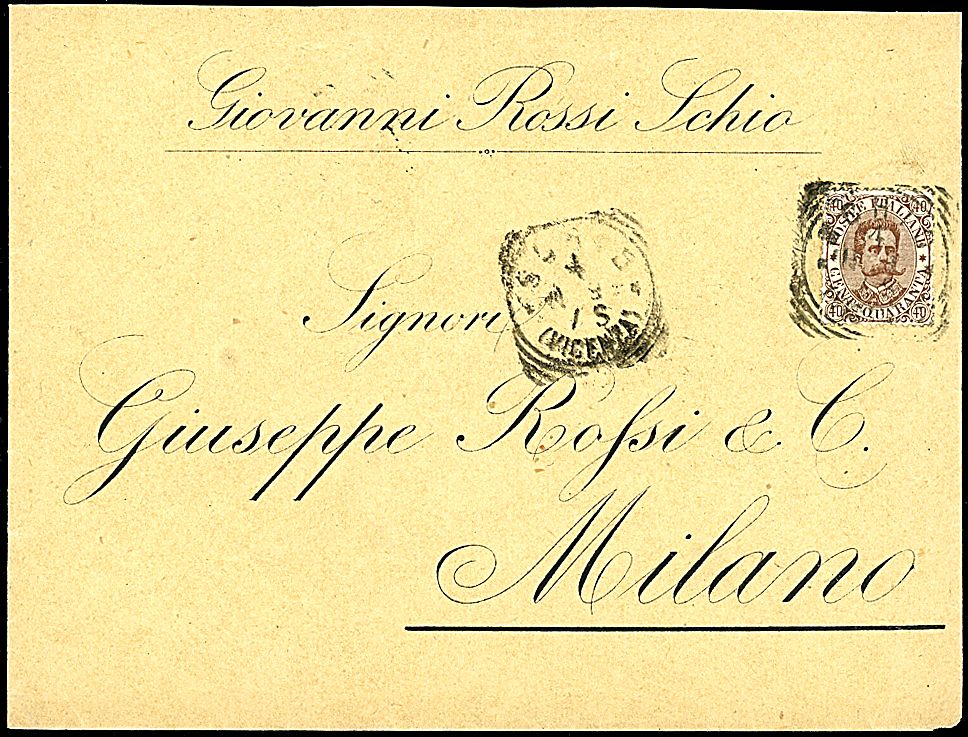 Giovanni Rossi Schio
40 40
POSTE ITALIANE
CENT. QUARANTA
40 40
Signori
(VICENZA)
Giuseppe Rossi & C.
Milano